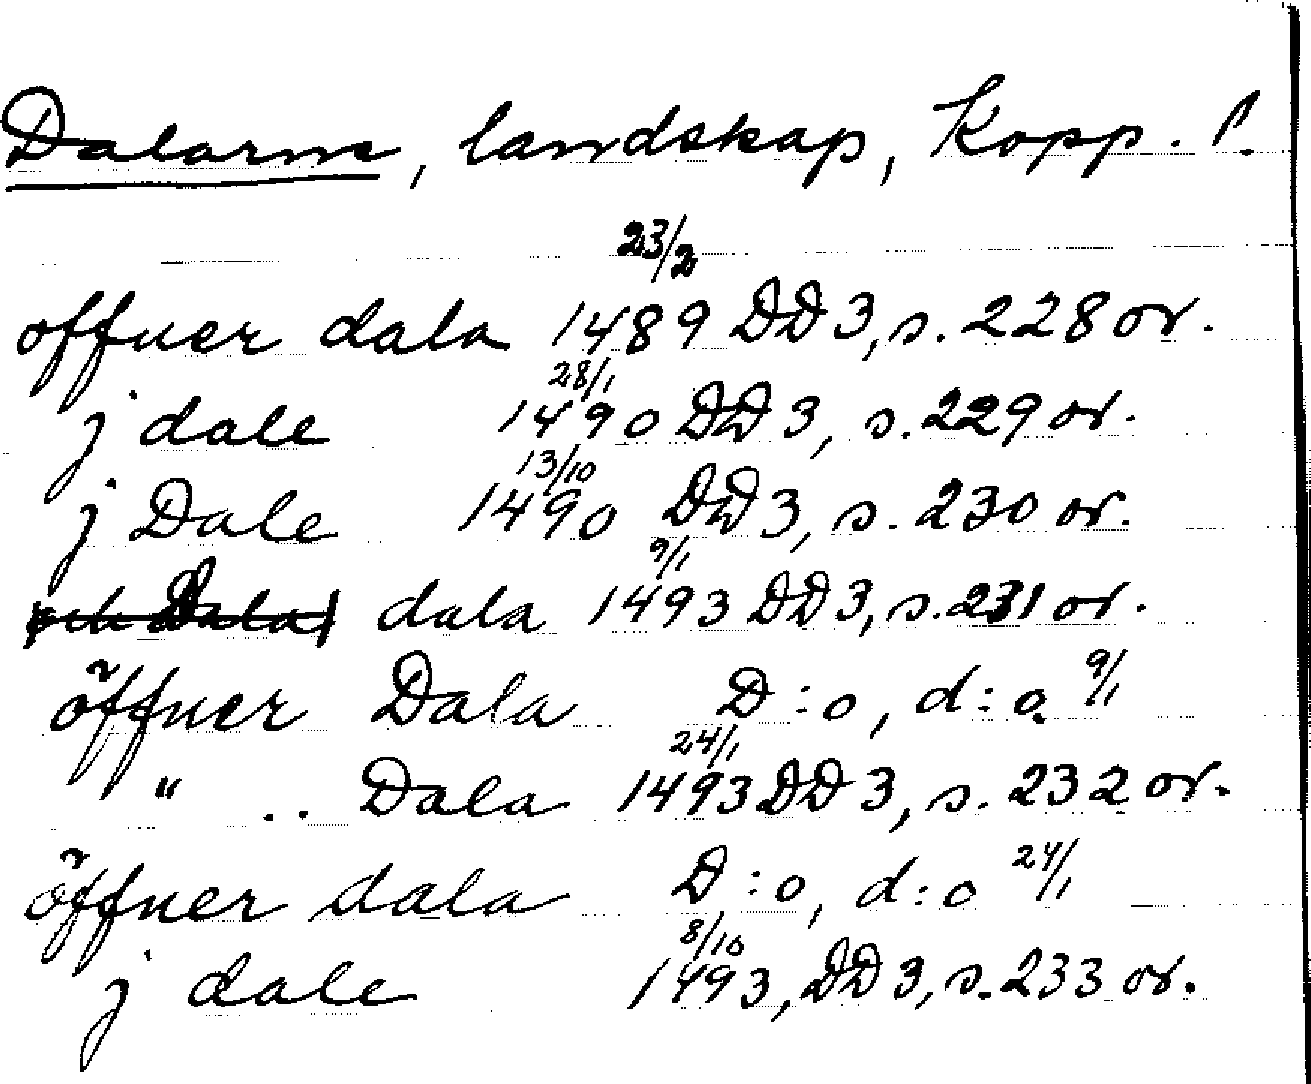 Dalarne, landskap, Kopp. l.
23/2
offner dala 1489 DD 3, s. 228 or.
28/1
j dale 1490 DD 3, s. 229 or.
13/10
j Dale 1490 DD 3, s. 230 or.
9/1
dala 1493 DD 3, s. 231 or.
öffner Dala D:o, d:o 9/1
24/1
" .. Dala 1493 DD 3, s. 232 or.
öffner dala D:o, d:o 24/1
8/10
j dale 1493, DD 3, s. 233 or.